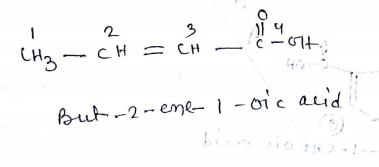 1 2 3 O
CH3 — CH = CH — C4 — OH
But-2-ene 1-oic acid